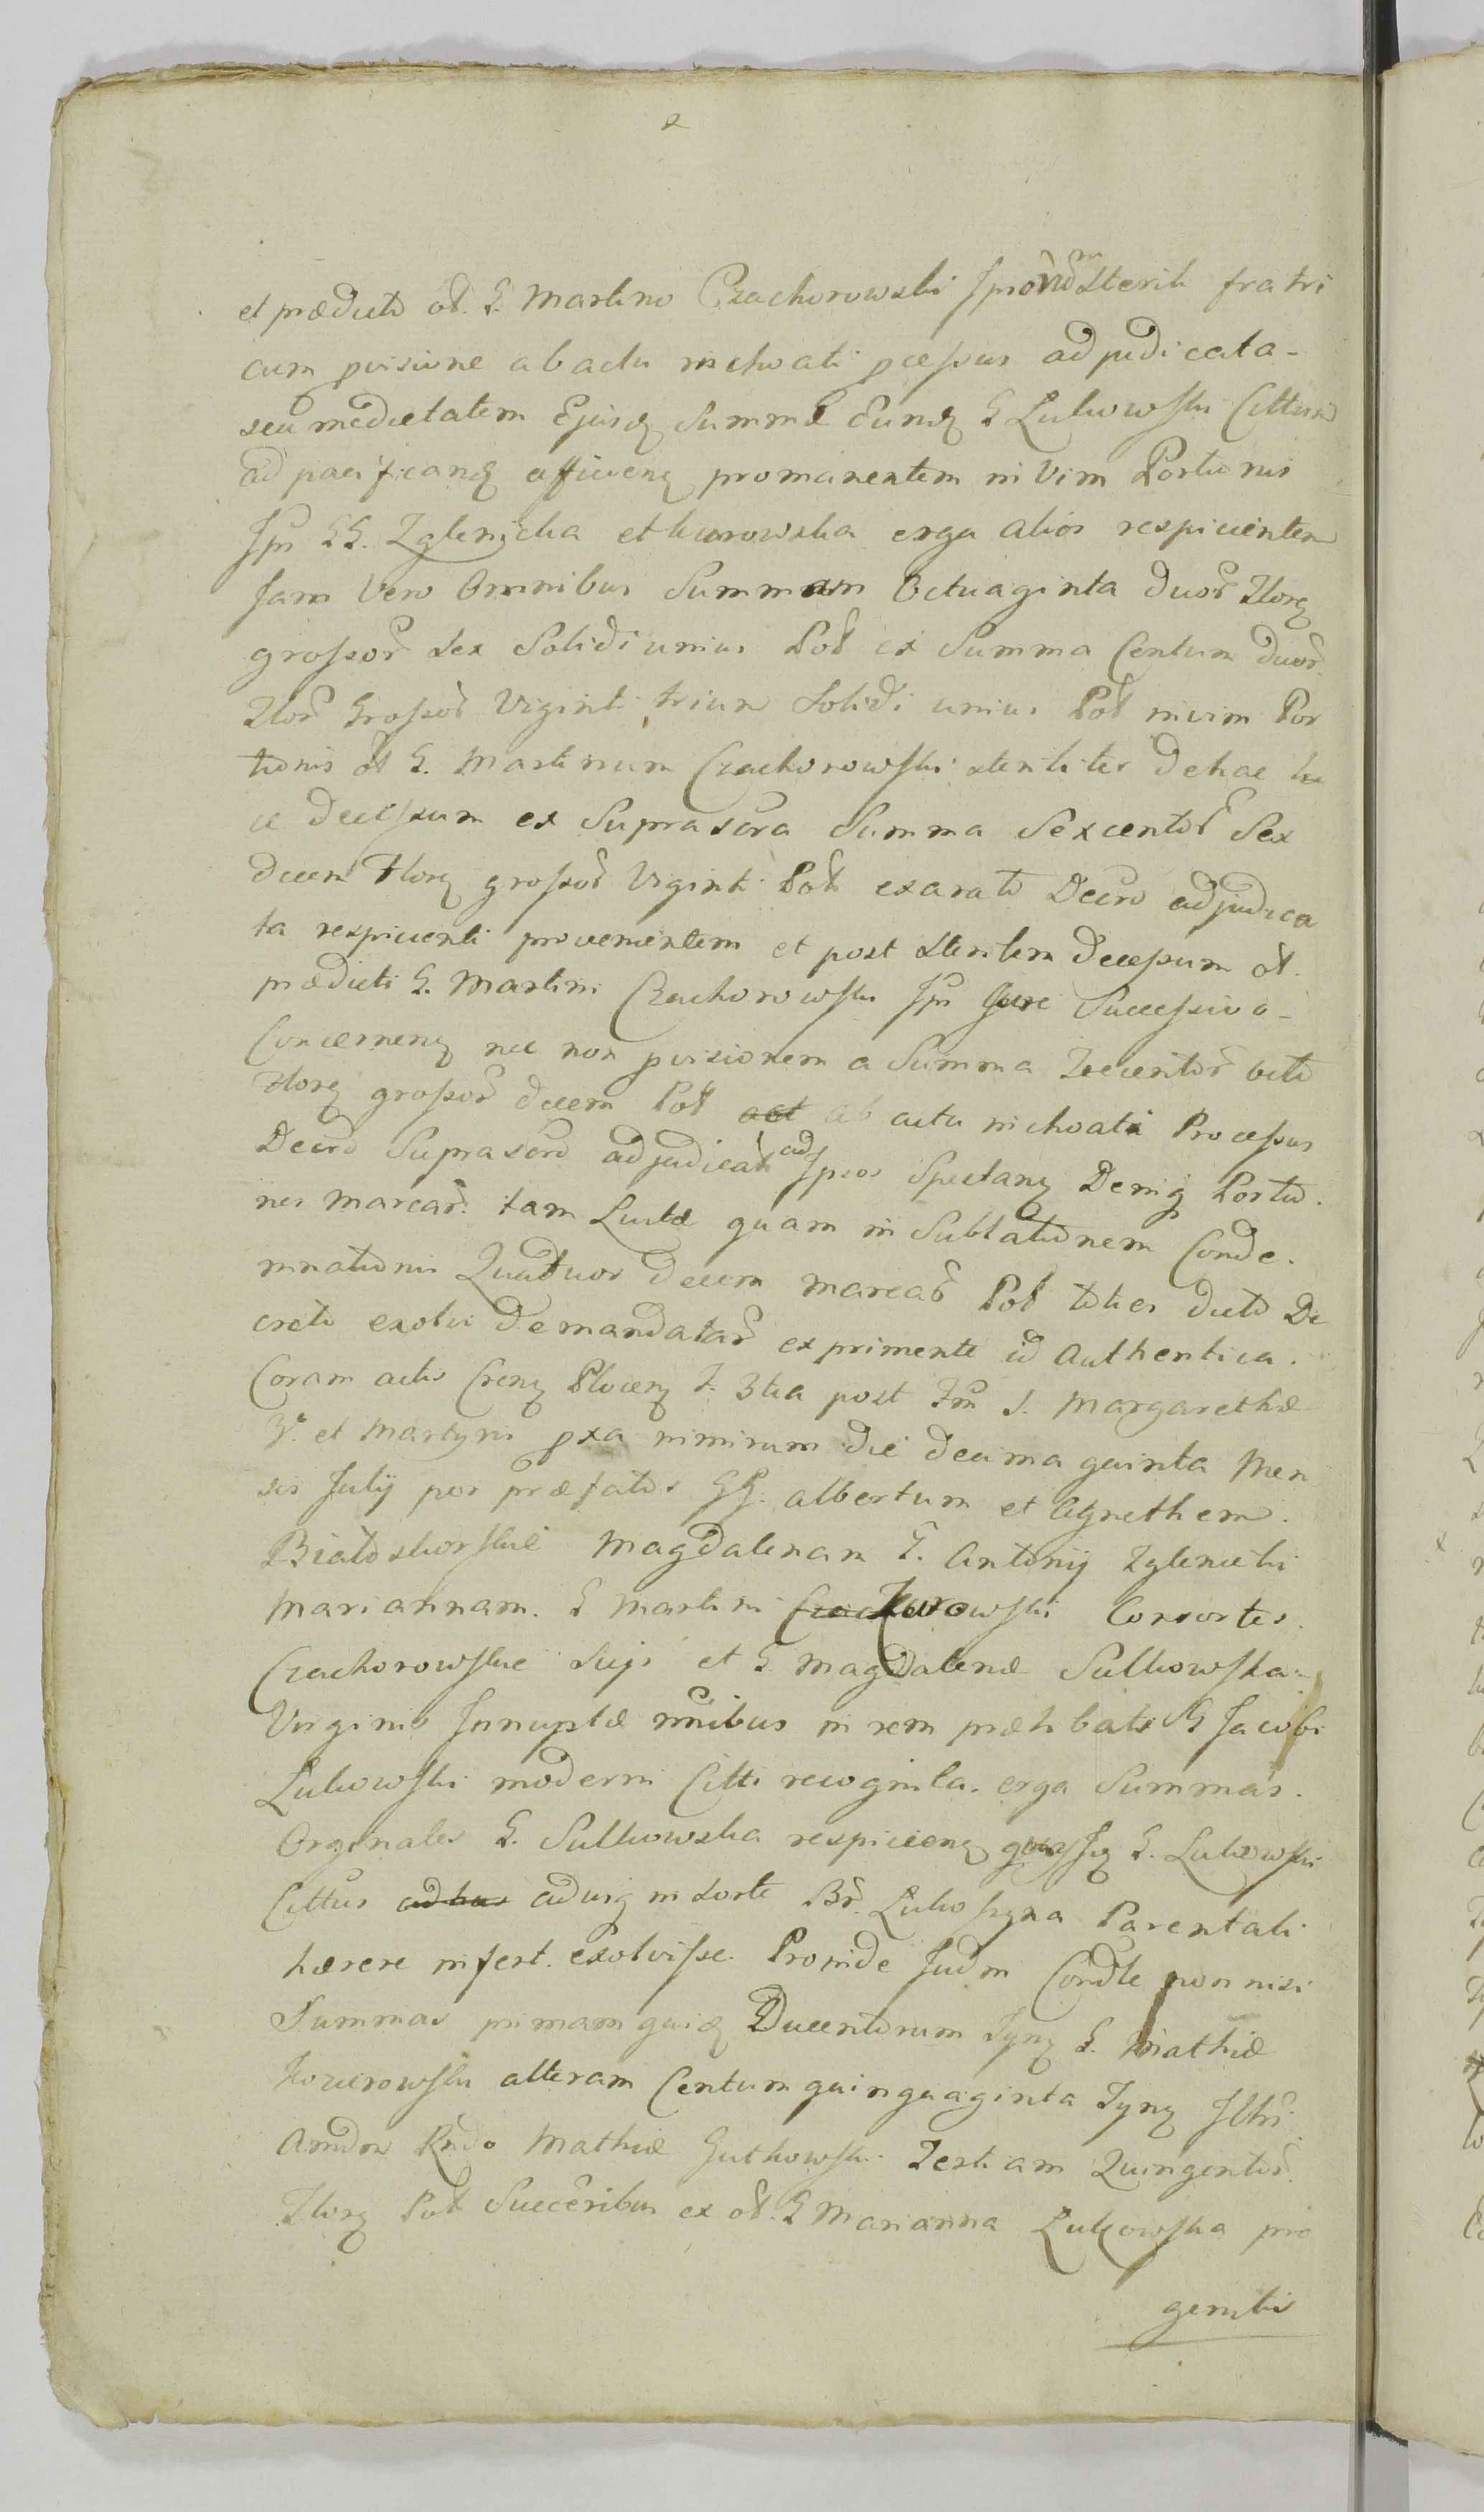 et prædicto ol. G. Martino Czachorowski sterili fratri
cum pvisione ab actu inchoati pcessus adjudicata-
seu medietatem Ejusq Summæ Eunq G Lukowski Cittum
ad pacificanq efficienq promanentem in Vim Portionis
Ips GG. Zglenicka et kurowska erga alios respicientem
Jam Vero Omnibus Summam Octuaginta duor flonq
grossor sex Solidi unius Pol ex Summa Centum duor.
flor Grossor Viginti trium Solidi unius Pol in vim Por
tionis ol G. Martinum Czachorowski steriliter de hac lu
ce decessum ex Suprascra Summa Sexcentor Sex
decem florq grossor Viginti Pol exarato Decro adjudica
ta respicienti provenientem et post sterilem decessum ol.
prædicti G. Martini Czachorowski Ips Jure Successivo-
Concernenq nec non pvisionem a Summa Trecentor octo
florq grossor decem Pol ab actu inchoati Processus
Decro Suprascro adjudicat ad Ipsos Spectanq Deniq Portio.
nes marcar. tam Luitæ quam in Sublationem Conde.
mnationis Quatuor decem marcar Pol toties dicto De
creto exolvi demandatar exprimente id Authentica.
Coram actis Crenq Plocenq f. 3tia post Fm S. Margarethæ
V. et Martyris pxa nimirum die decima quinta Men
sis Julij per præfatos GG. Albertum et Agnethem.
Białoskorskie Magdalenam G. Antonij Zglenicki
Mariannam. G Martini Kurowski Consortes.
Czachorowskie Sugi et G Magdalenæ Sulkowska-
Virginis Innuptæ mnibus in rem præhibati G Jacobi
Lukowski moderni Citti recognita. erga Summas.
Orginales G. Sulkowska respicienq G. Lukowski
Cittus adusq in sorte Br. Lukoszyna Parentali
hærere infert. exolvisse. Proinde Judm Condle non nisi
Summas primam quidem Ducentorum Tynq G. Mathiæ
alteram Centum quinquaginta Tynq Illri.
Amdm Rndo Mathiæ Gutkowski. Tertiam Quingentor.
florq Pol Succeribus ex ol. G Marianna Lukowska pro
genitis